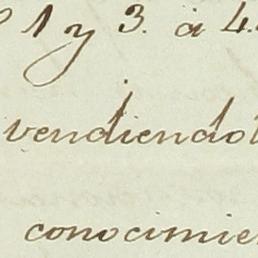 1 y 3. á 4.
vendiendo
conocimie